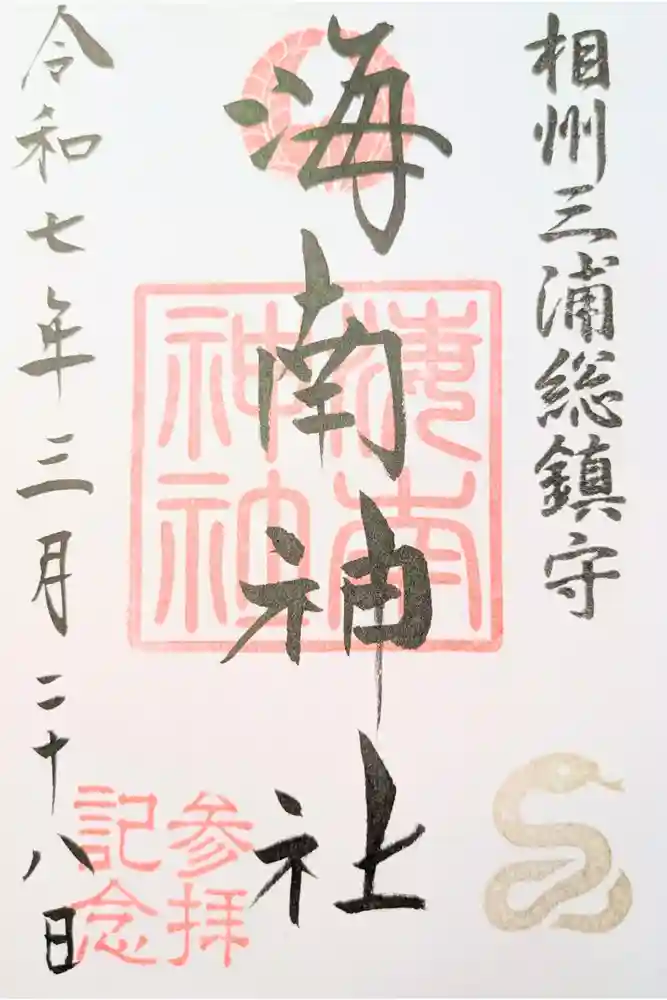 相州三浦総鎮守
海南神社
海南神社
参拝記念
令和七年三月二十八日